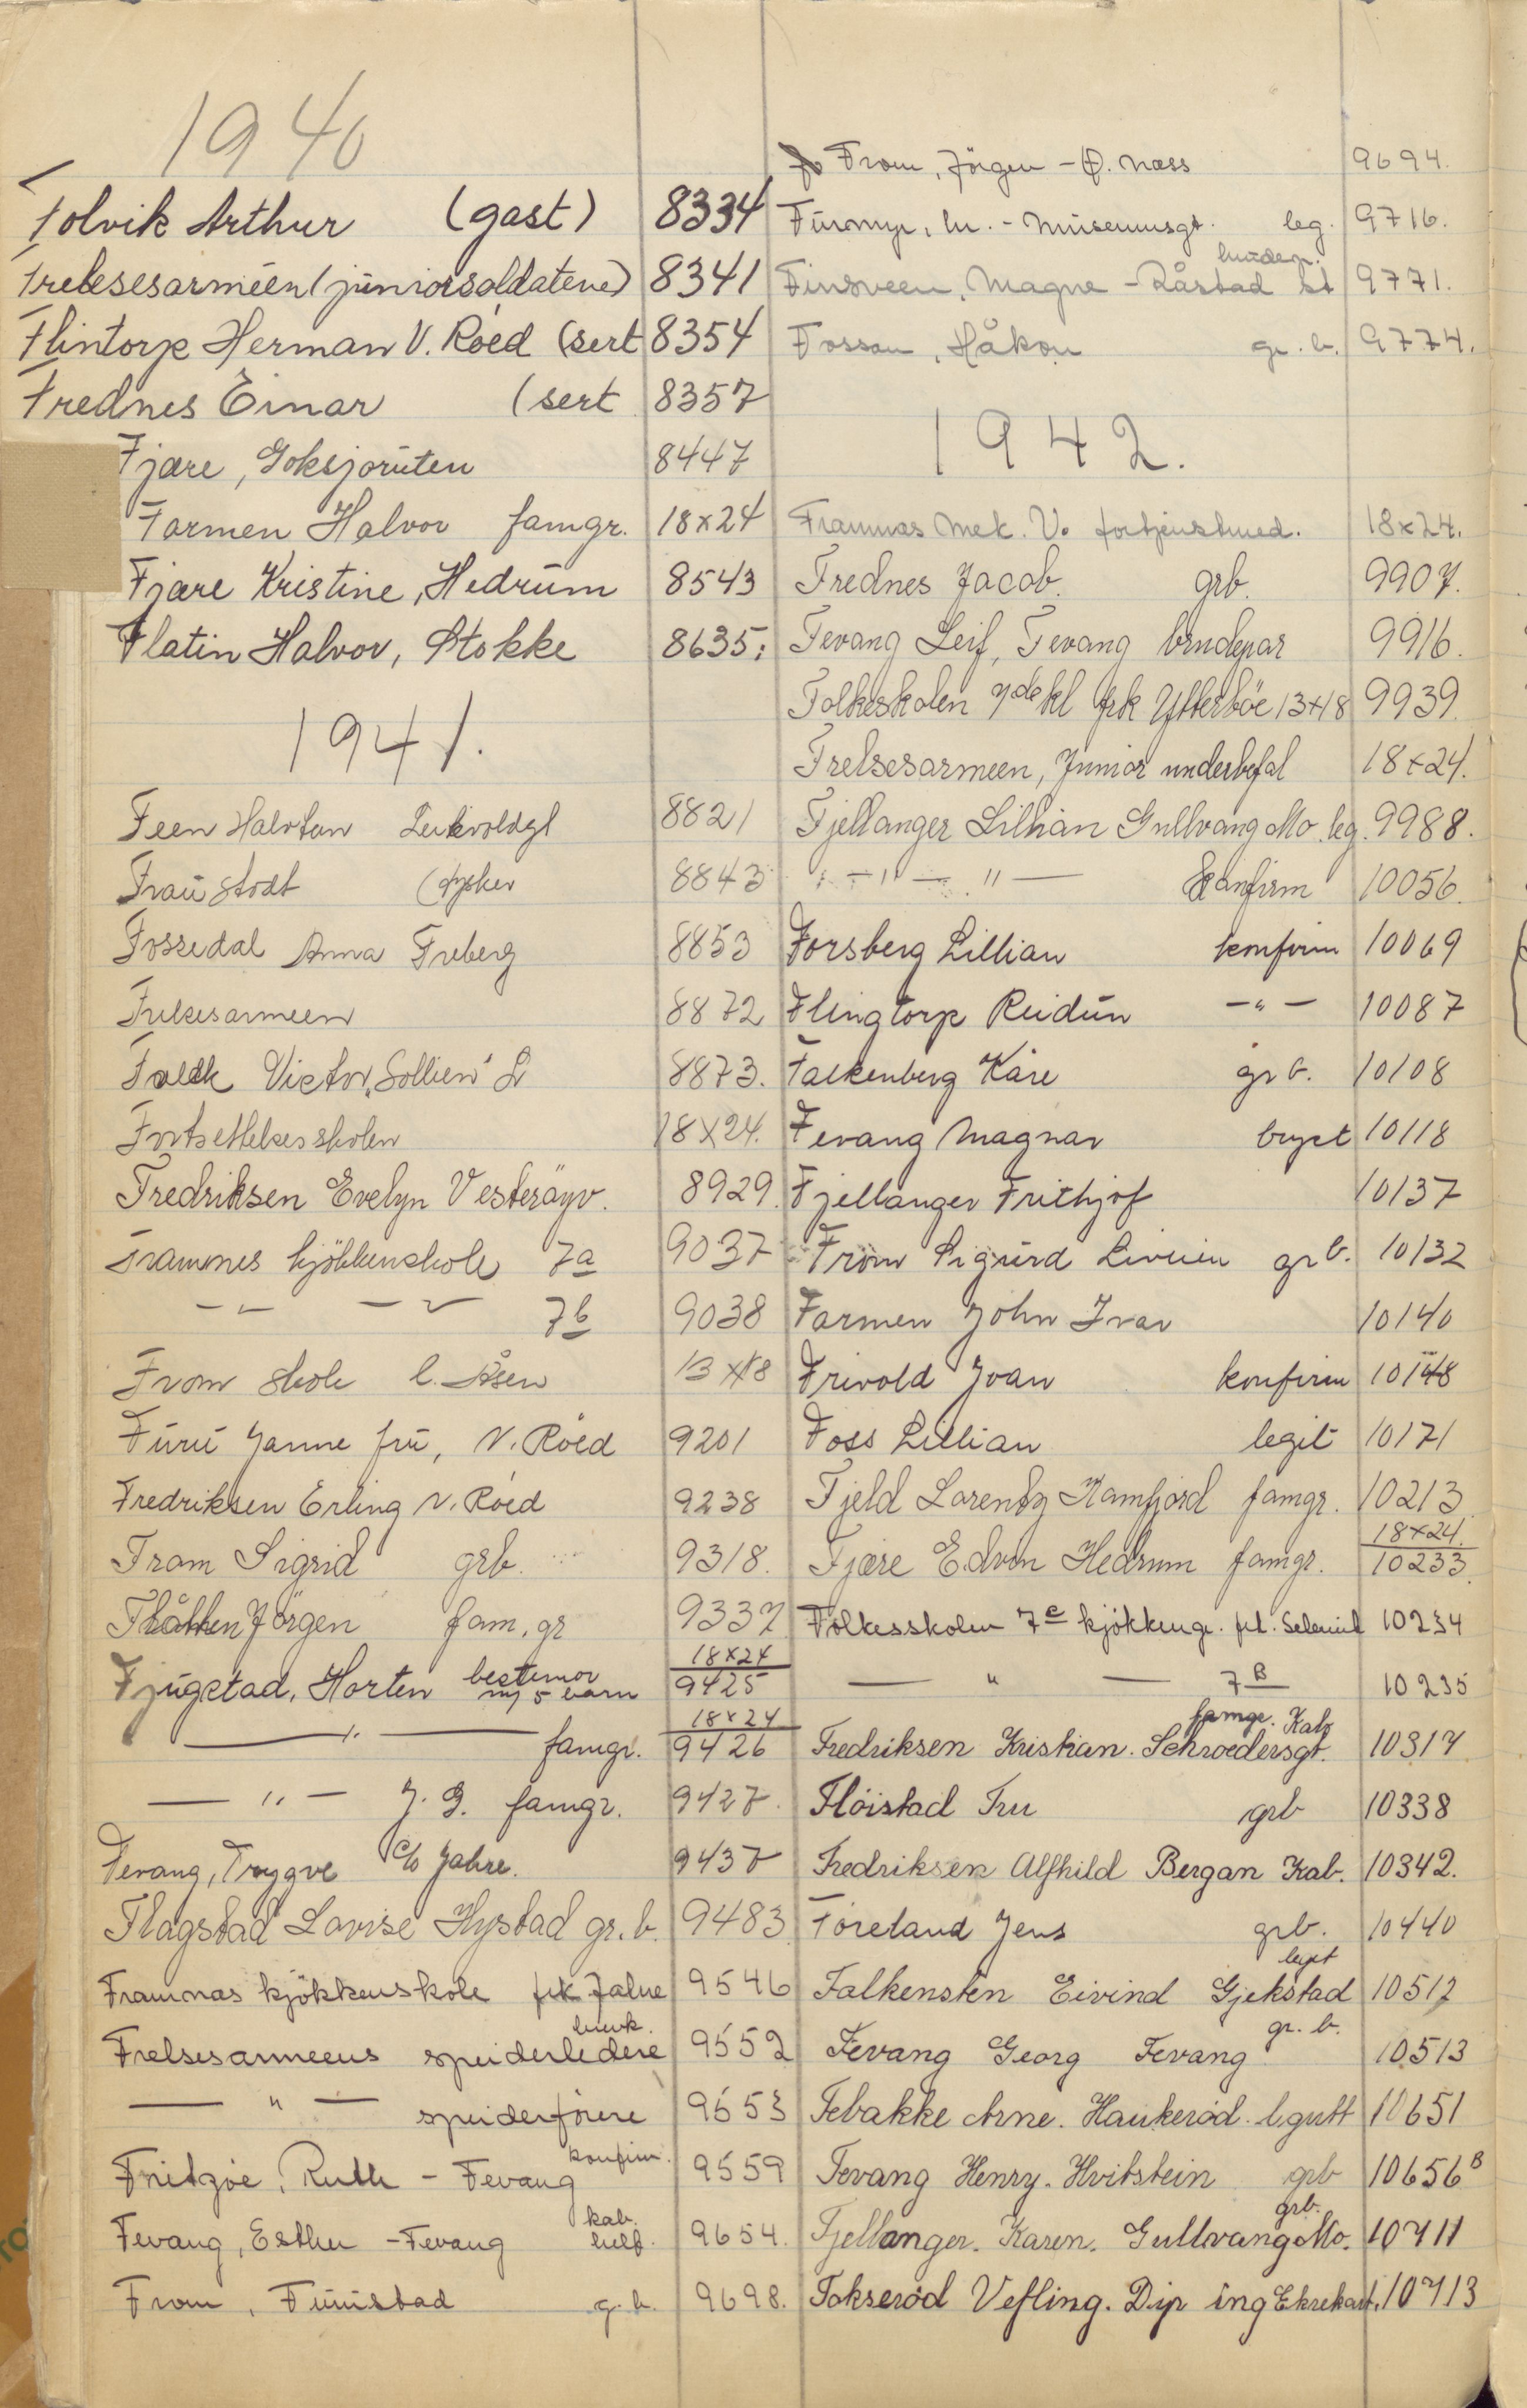 1940
Folvik Arthur (gast) 8334
Frelsesarméen (juniorsoldatene) 8341
Flintorp Herman V. Röed (sert 8354
Frednes Einar (sert 8357
Fjære, Goksjoruten 8447
Farmen Halvor famgr. 18x24
Fjære Kristine, Hedrum 8543
Flatin Halvor, Stokke 8635
1941.
Feen Halvtan 8821
Frau Stodt (tysker 8843
Fossedal Anna Freberg 8853
Frelsesarmeen 8872
Victor 8873.
Fortsettelsesskolen 18x24.
Fredriksen Evelyn Vesteröyv. 8929.
Framnes kjökkenskole 7a 9037
7b 9038
From skole l. Åsen 13x18
Furu Janne fru, V. Röed 9201
Fredriksen Erling V. Röed 9238
From Sigrid grb. 9318.
Flåtten Jörgen fam.gr 9337
Fjugstad, Horten bestemor m/ 5 barn 18x24 9425
— " — famgr. 18x24 9426
— " — J. G. famgr. 9427.
Fevang, Trygve c/o Jahre. 9437
Flagstad Lovise Hystad gr.b. 9483
Framnas kjökkenskole frk 9546
Frelsesarmeens speiderledere 9552
— " — speiderförere 9553
Fritzöe, Ruth - Fevang konfirm. 9559
Fevang, Esther - Fevang kab. 9654.
From, g.b. 9698.
From, Jörgen - Ø. Næss 9694.
- Museumsgt. leg. 9716.
Finsveen, Magne - Råstad st 9771.
Håkon gr.b. 9774.
1942.
Framnæs Mek. V. fortjenstmed. 18x24.
Frednes Jacob. grb. 9907.
Fevang Leif, Fevang brudepar 9916.
Folkeskolen 7de kl frk Ytterböe 13x18 9939
Frelsesarmeen, Junior underbefal 18x24.
Fjellanger Lillian Gullvang Mo. leg. 9988.
— " — " — konfirm 10056.
Forsberg Lillian konfirm 10069
Flingtorp Reidun — " — 10087
Falkenberg Kåre gr b. 10108
Fevang Magnar bryst 10118
Fjellanger Frithjof 10137
From Sigurd gr b. 10132
Farmen John Ivar 10140
Frivold Joan konfirm 10148
Foss Lillian legit 10171
Fjeld Lorentz Kamfjord famgr. 10213
Fjære Edvin Hedrum famgr. 18x24. 10233.
Folkesskolen 7c kjökkengr. 10234
— " — 7B 10235
Fredriksen Kristian. Schroedersgt. famgr. Kab 10317
Flöistad Fru grb 10338
Fredriksen Alfhild Bergan Kab. 10342.
Föreland Jens grb. 10440
Falkensten Eivind Gjekstad legit 10512
Fevang Georg Fevang gr. b. 10513
Febakke Arne. Haukeröd. l.gutt 10651
Fevang Henry. Hvitstein grb 10656B
Fjellanger. Karen. Gullvang Mo. grb. 10711
Fokseröd Vefling. Dip ing 10713